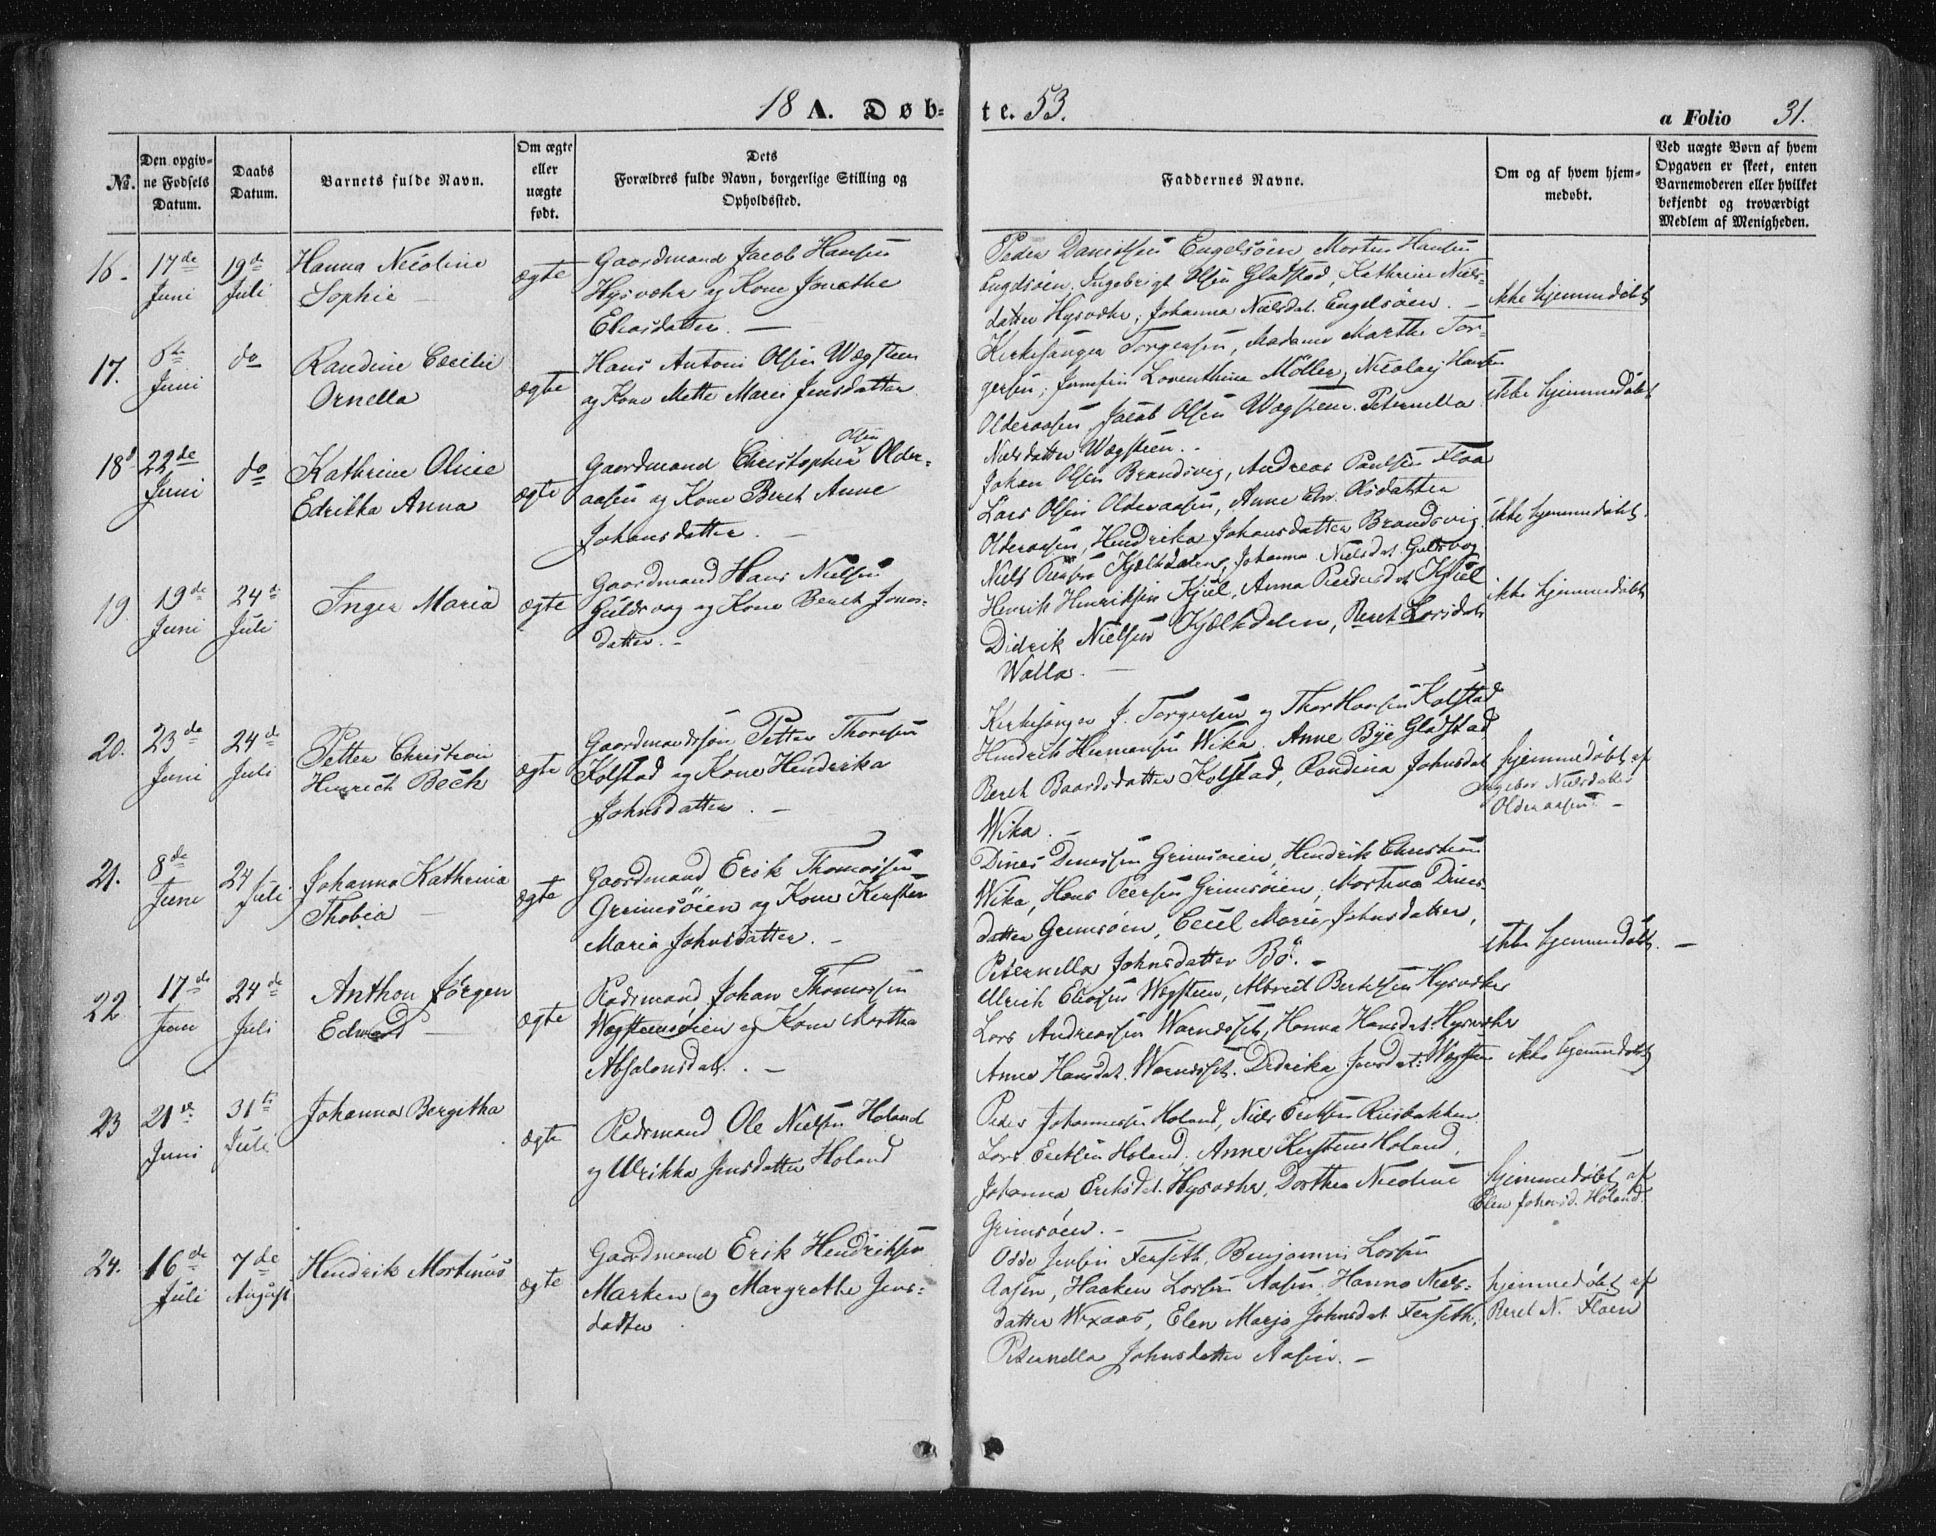 18 A. Døb-
te. 53.
a Folio 31.
No.
Den opgiv-
ne Fødsels
Datum.
Daabs
Datum.
Barnets fulde Navn.
Om ægte
eller
uægte
født.
Dets
Forældres fulde Navn, borgerlige Stilling og
Opholdssted.
Faddernes Navne.
Om og af hvem hjem-
medøbt.
Ved uægte Børn af hvem
Opgaven er skeet, enten
Barnemoderen eller hvilket
bekjendt og troværdigt
Medlem af Menigheden.
16.
17de
Juni
19de
Juli
Hanna Nicoline
Sophie
ægte
Gaardmand Jacob Hansen
Hysvær og Kone Jonethe
Eliasdatter.
Peder Danielsen Engelsöen, Morten Hansen
Engelsöen, Ingebrigt Olsen Gladstad, Kathrine Niels-
datter Hysvær, Johanna Nielsdat. Engelsöen.
ikke hjemmedöbt
17.
Juni
do
Randine Cecilie
Ornella
ægte
Hans Antoni Olsen Wægsteen
og Kone Mette Marie Jensdatter.
Kirkesanger Torgersen, Madame Marthe Tor-
gersen, Jomfru Loventhina Möller, Nicolay Hansen
Olderaasen, Jacob Olsen Wægsteen. Peternella
Nielsdatter Wægsteen.
ikke hjemmedöbt
18
22de
Juni
do
Kathrine Oline
Edrikka Anna
ægte
Gaardmand Christopher Olsen Older-
aasen og Kone Beret Anne
Johansdatter.
Johan Olsen Brandsvig, Andreas Paulsen Floa
Lars Olsen Olderaasen, Anne Chr. Olsdatter
Olderaasen, Hendrika Johansdatter Brandsvig.
ikke hjemmedöbt.
19.
19de
Juni
24de
Juli
Inger Maria
ægte
Gaardmand Hans Nielsen
Guldsvog og Kone Beret Jonas-
datter.
Niels Peersen Kjælkdalen, Johanna Nielsdat. Guldsvog
Henrik Henriksen Kjul, Anna Pedersdat Kjul
Didrik Nielsen Kjælkdalen, Beret Larsdat.
Walla.
ikke hjemmedöbt
20.
23de
Juni
24de
Juli
Petter Christian
Henrich Bech
ægte
Gaardmandssön Petter Thorsen
Kolstad og Kone Hendrika
Johnsdatter.
Kirkesanger J. Torgersen og Thor Hansen Kolstad
Hendrik Hermansen Wika. Anne Bye Gladstad
Beret Baardsdatter Kolstad, Randina Johnsdat
Wika.
hjemmedöbt af
Ingebor Nielsdatter
Olderaasen.
21.
8de
Juni
24
Juli
Johanna Kathrina
Thobia
ægte
Gaardmand Erik Thomassen
Grimsöien og Kone Kirsten
Maria Johnsdatter.
Dines Dinessen Grimsöien, Hendrik Christian
Wika, Hans Peersen Grimsöien, Martina Dines-
datter Grimsöen, Cecil Marie Johnsdatter,
Peternella Johnsdatter Bö.
ikke hjemmedöbt.
22
17de
Juni
24de
Juli
Anthon Jörgen
Edward
ægte
Radsmand Johan Thomassen
Wægsteensöien og Kone Martha
Absalonsdat.
Ulrich Eliasen Wægsteen, Albret Bertelsen Hysvær
Lars Andreassen Warnesset, Hanna Hansdat. Hysvær
Anne Hansdat. Warnesset. Didrika Jensdat. Wægsteen
ikke hjemmedöbt
23
21de
Juni
31te
Juli
Johanna Bergitha
ægte
Radsmand Ole Nielsen Holand
og Ulrikka Jensdatter Holand
Peder Johannessen Holand, Niels Eriksen Riisbakken
Lars Eriksen Holand. Anne Kirstine Holand.
Johanna Eriksdat. Hysvær, Dorthea Nicoline
Grimsöen.
hjemmedöbt af
Elen Johansd. Holand.
24.
16de
Juli
7de
August
Hendrik Martinus
ægte
Gaardmand Erik Hendriksen
Marken og Margrethe Jens-
datter
Odde Jensen Forseth. Benjamin Larsen
Aasen, Haaken Larsen Aasen, Hanna Niels-
datter Wxaas, Elen Marja Johnsdat. Forseth.
Peternella Johnsdatter Aasen.
hjemmedöbt af
Beret N. Floen